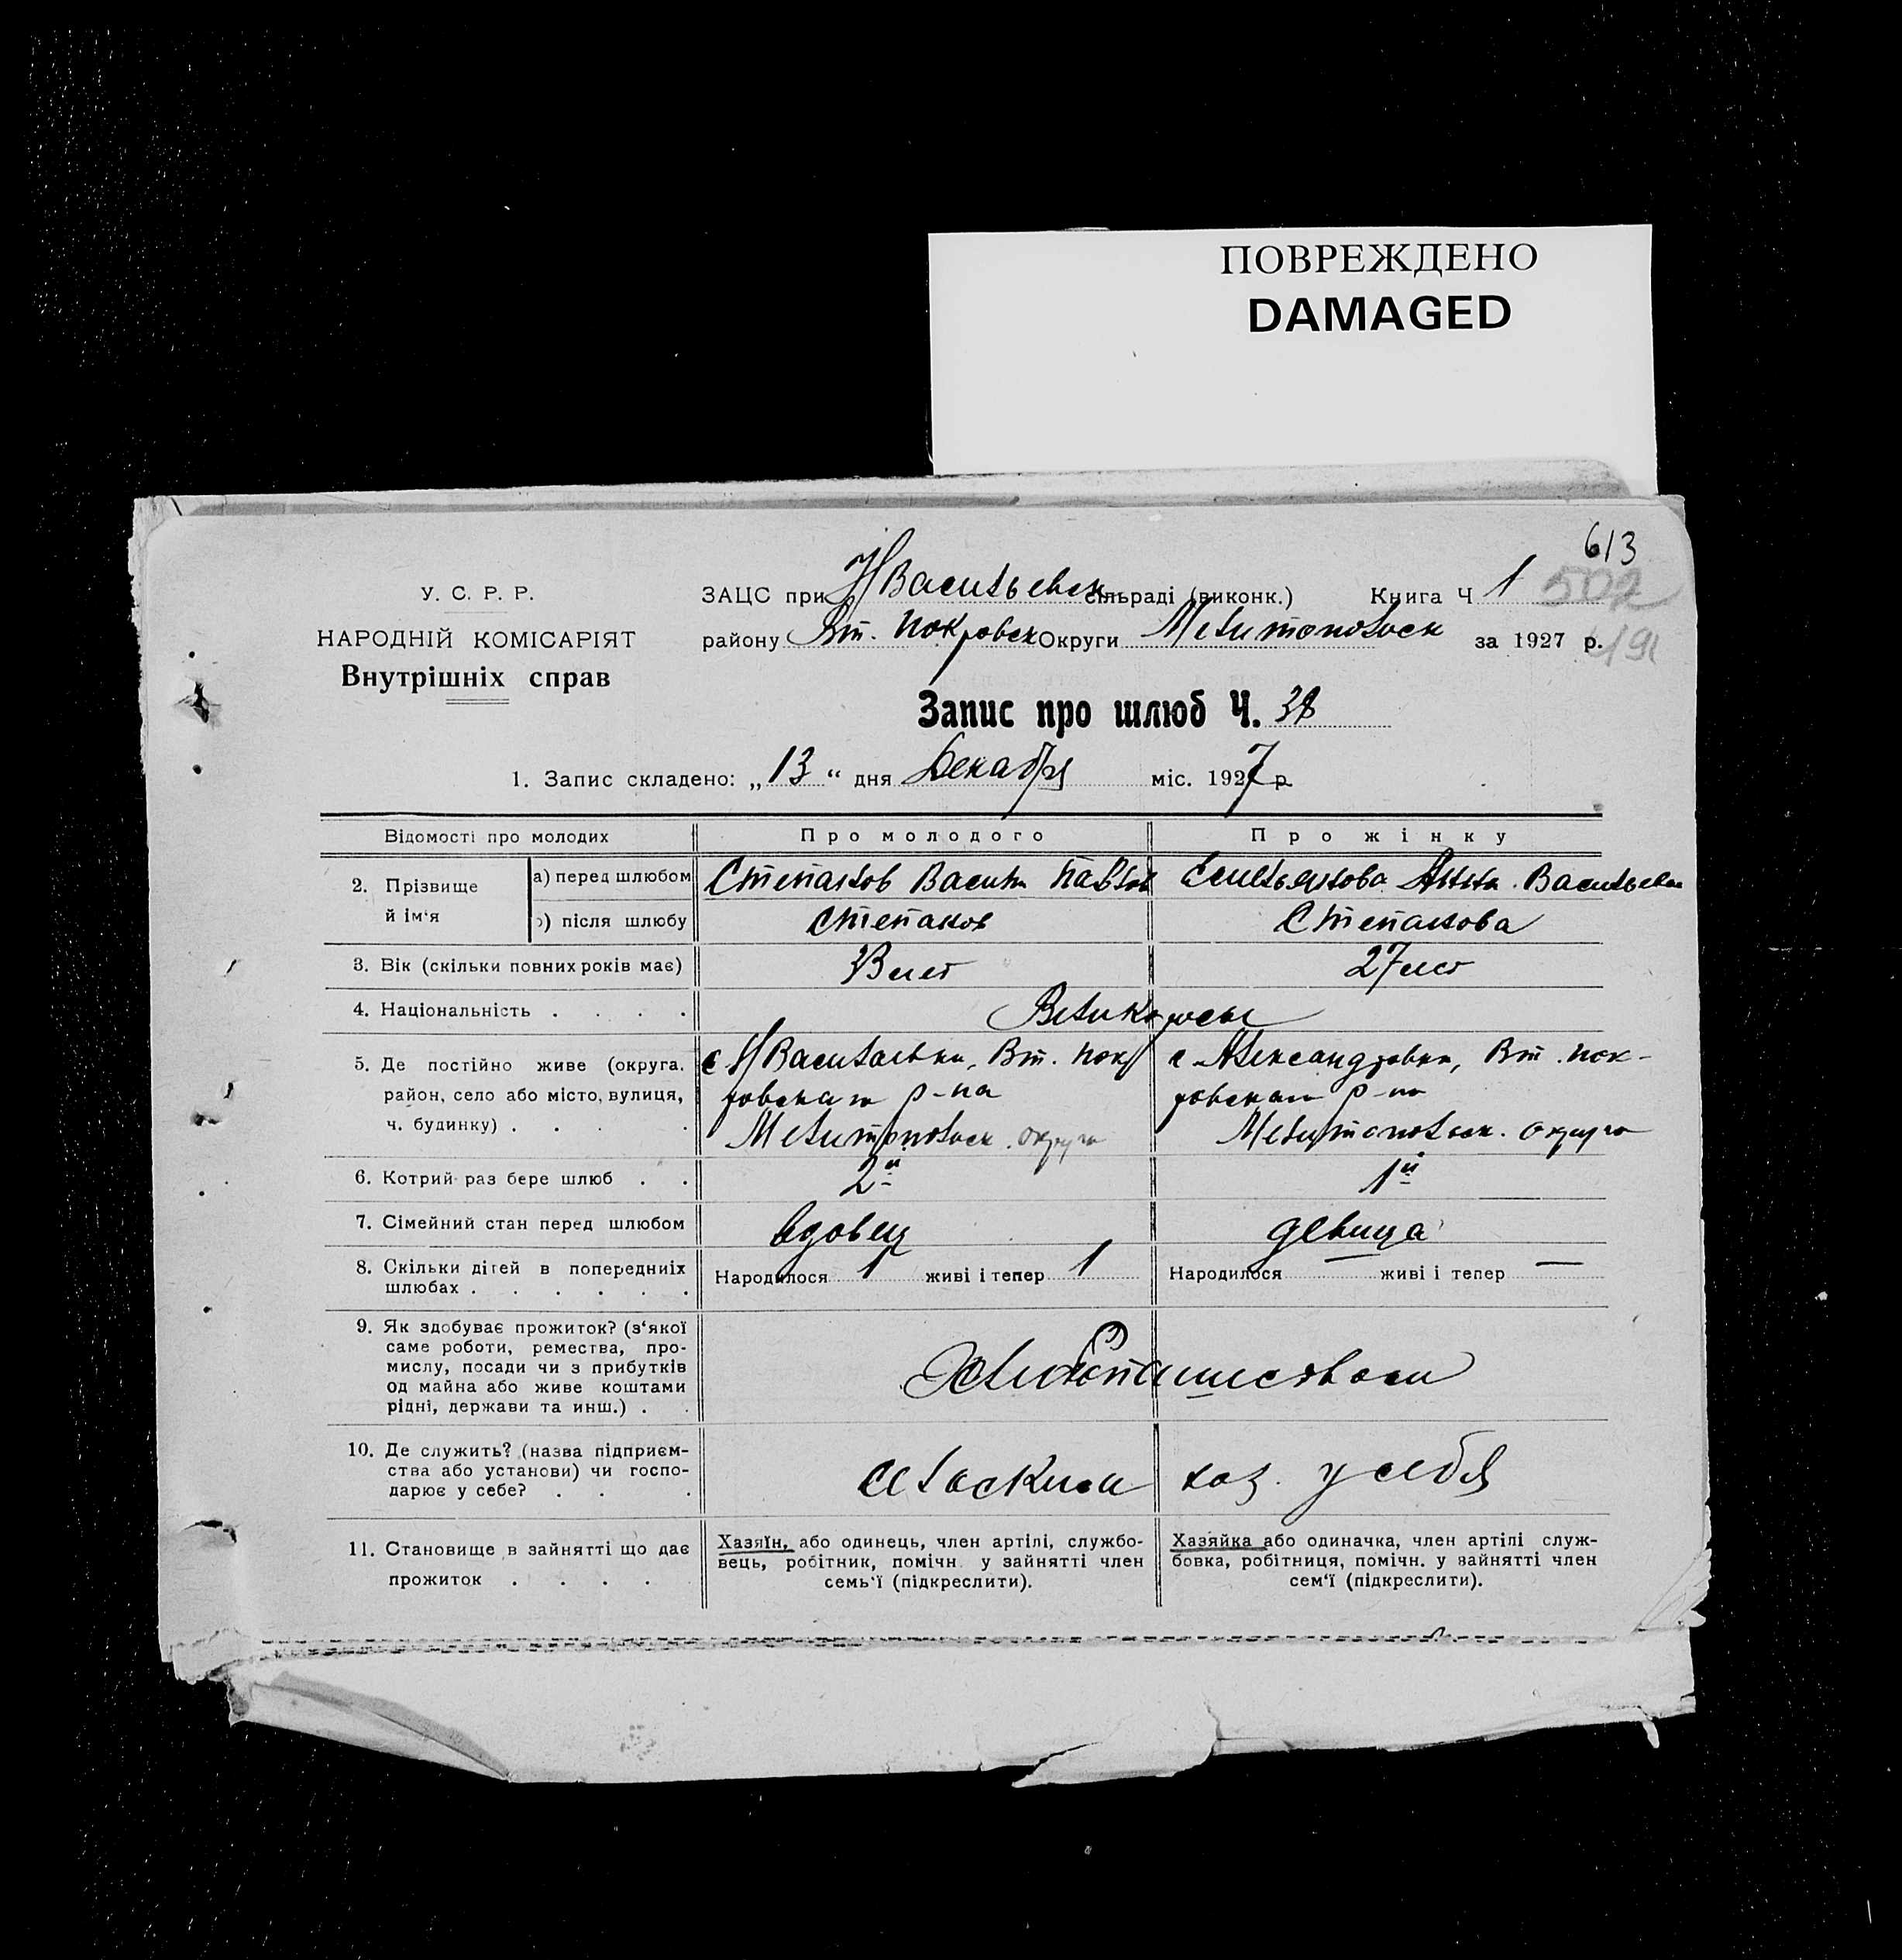 ПОВРЕЖДЕНО
DAMAGED
613
502
491
У. С. Р. Р.
НАРОДНІЙ КОМІСАРІЯТ
Внутрішніх справ
ЗАЦС при Н Васильевск сільраді (виконк.) Книга Ч 1
району Вт. Покровск Округи Мелитопольск за 1927 р.
Запис про шлюб Ч. 38
1. Запис складено: „ 13 “ дня Декабря міс. 1927 р.
Відомості про молодих Про молодого Про жінку
2. Прізвище й ім‘я
а) перед шлюбом Степанов Васили Павлов Емельянова Анна Васильевн
б) після шлюбу Степанов Степанова
3. Вік (скільки повних років має) лет 27 лет
4. Національність . . . . Великоросы
5. Де постійно живе (округа, район, село або місто, вулиця, ч. будинку) . . .
с Н Васильевки, Вт. Пок
ровскаго р-на
Мелитопольск. округа
с Александровки, Вт. Пок-
ровскаго р-на
Мелитопольск. округа
6. Котрий раз бере шлюб . . 2й 1й
7. Сімейний стан перед шлюбом вдовец девица
8. Скільки дітей в попередниіх шлюбах . . . . . . Народилося 1 живі і тепер 1 Народилося живі і тепер —
9. Як здобуває прожиток? (з‘якої
саме роботи, ремества, про-
мислу, посади чи з прибутків
од майна або живе коштами
рідні, держави та инш.) . .
Хлебопашеством
10. Де служить? (назва підприєм-
ства або установи) чи госпо-
дарює у себе? . . .
сельским хоз. у себя
11. Становище в зайнятті що дає
прожиток . . . .
Хазяїн, або одинець, член артілі, службо-
вець, робітник, помічн. у зайнятті член
семь‘ї (підкреслити).
Хазяйка або одиначка, член артілі служ-
бовка, робітниця, помічн. у зайнятті член
сем‘ї (підкреслити).